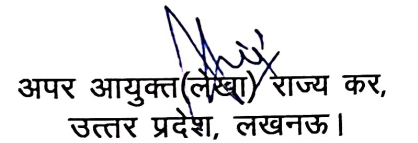 अपर आयुक्त(लेखा) राज्य कर,
उत्तर प्रदेश, लखनऊ।